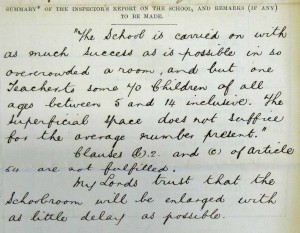 SUMMARY* OF THE INSPECTOR'S REPORT ON THE SCHOOL, AND REMARKS (IF ANY)
TO BE MADE.
"The School is carried on with
as much success as is possible in so
overcrowded a room, and but one
Teacher to some 70 Children of all
ages between 5 and 14 inclusive. The
superficial space does not suffice
for the average number present."
Clauses (b).2. and (c) of Article
are not fulfilled.
My Lords trust that the
Schoolroom will be enlarged with
as little delay as possible.